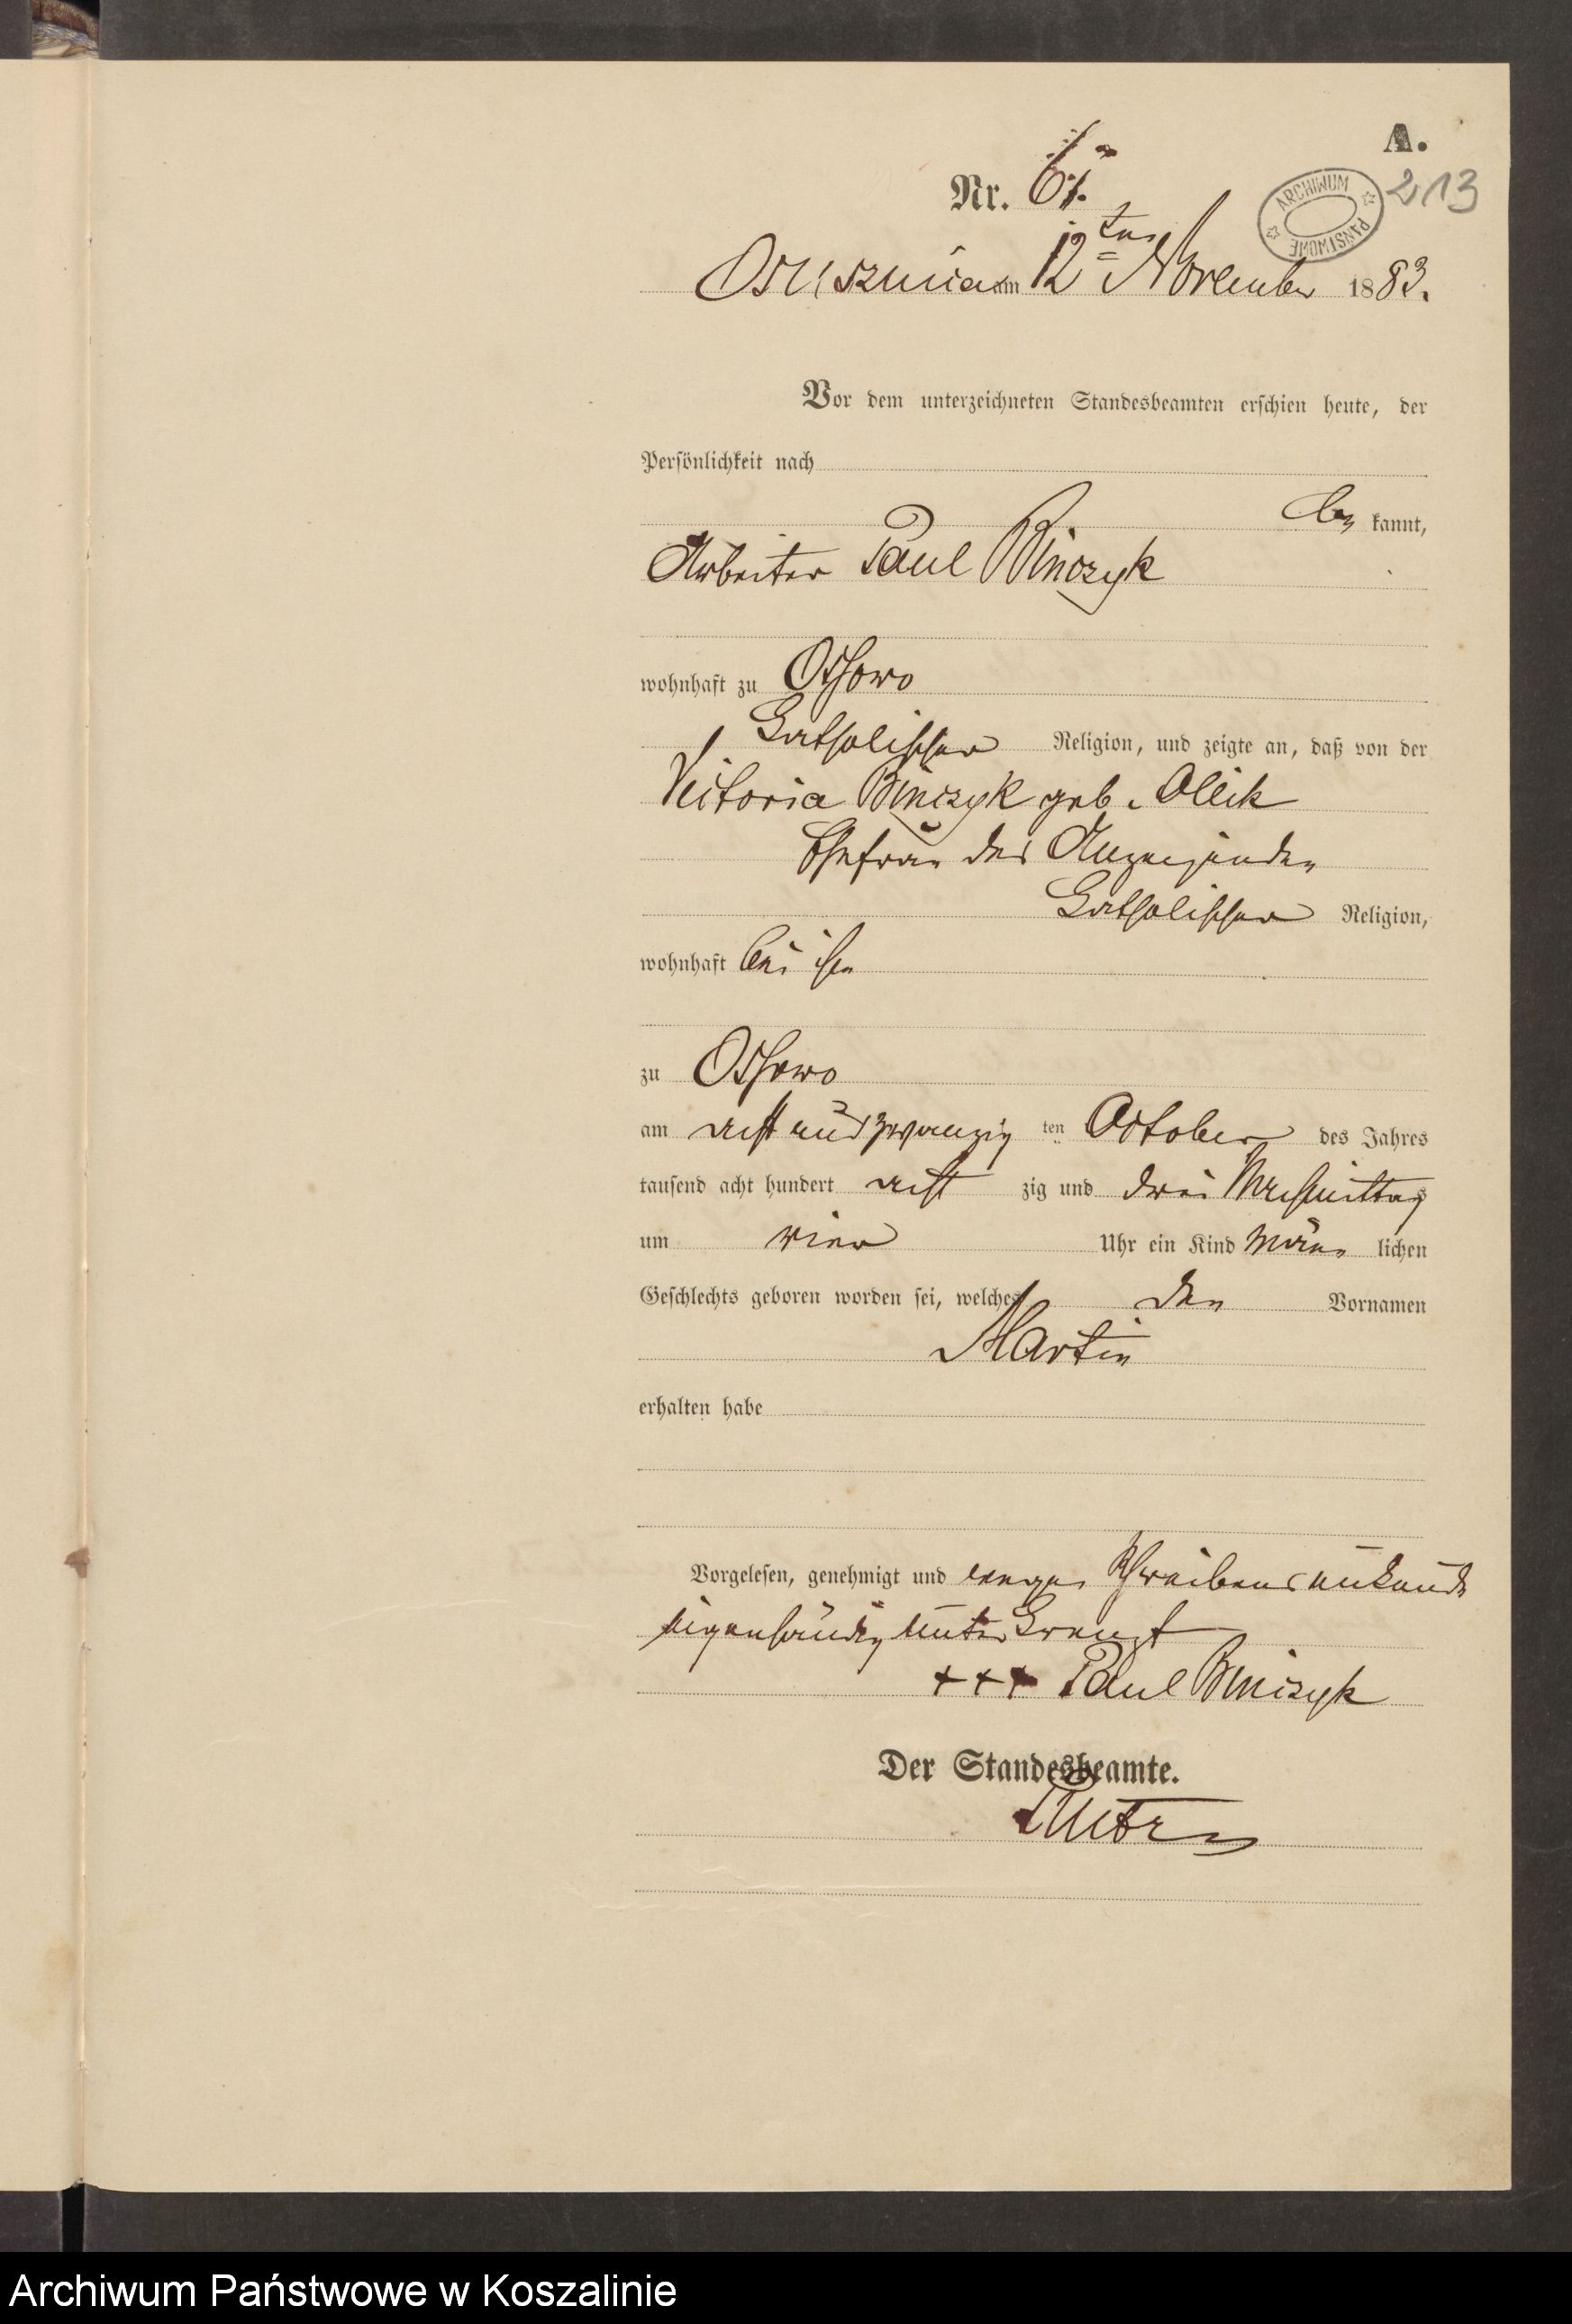 A.
213
ARCHIWUM PAŃSTWOWE
Nr. 61.
am 12ten November 1883.
Vor dem unterzeichneten Standesbeamten erschien heute, der
Persönlichkeit nach
be kannt,
Arbeiter Paul Binczyk
wohnhaft zu Ossowo
katholischer Religion, und zeigte an, daß von der
Victoria Binczyk geb. Ollik
Ehefrau des Anzeigenden
katholischer Religion,
wohnhaft bei ihm
zu Ossowo
am acht und zwanzig ten October des Jahres
tausend acht hundert acht zig und drei Nachmittags
um vier Uhr ein Kind männ lichen
Geschlechts geboren worden sei, welches den Vornamen
Martin
erhalten habe
Vorgelesen, genehmigt und wegen Schreibensunkunde
eigenhändig unterkreuzt
+++ Paul Binczyk
Der Standesbeamte.
Archiwum Państwowe w Koszalinie